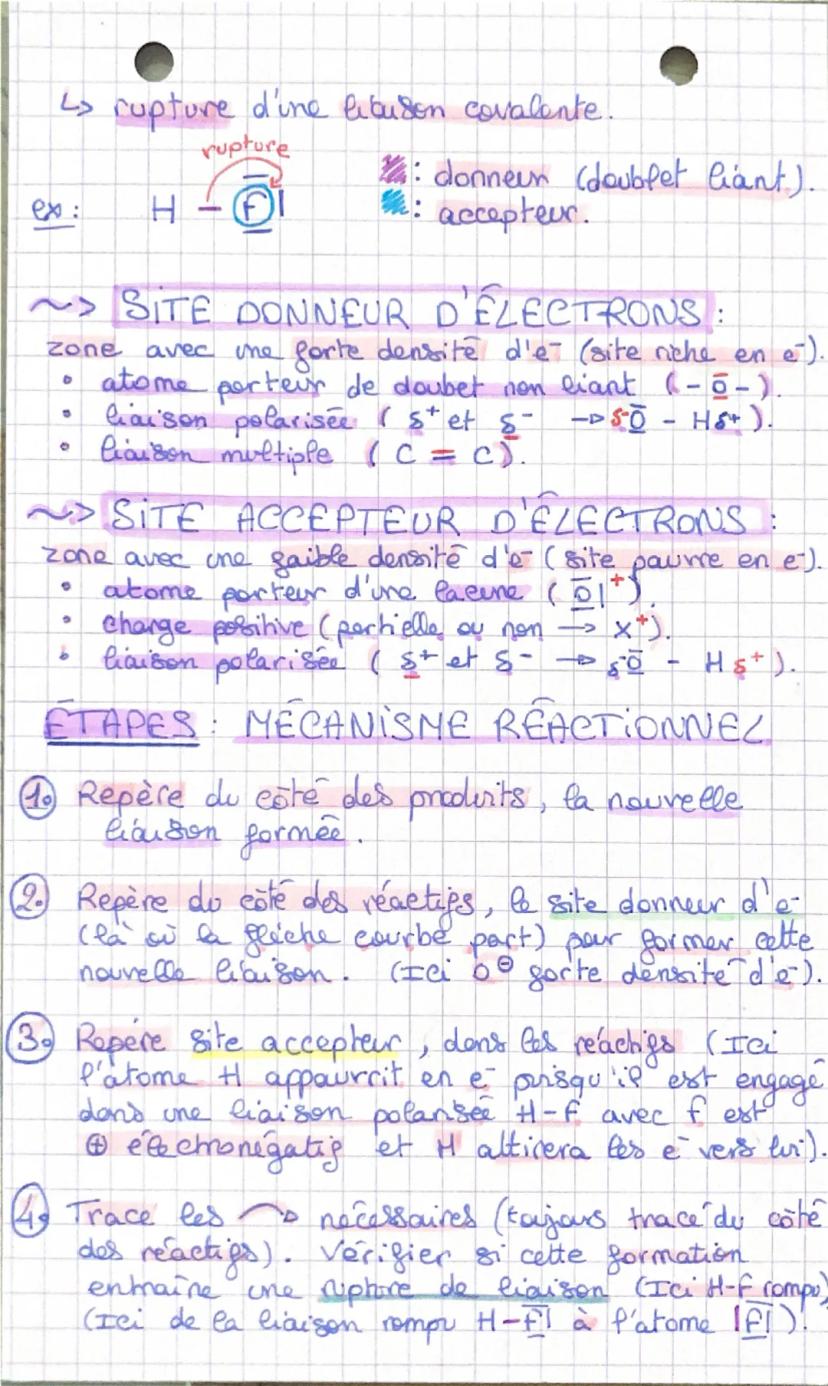 ↳ rupture d'une liaison covalente.
rupture
: donneur (doublet liant).
ex : H – F|
: accepteur.
~> SITE DONNEUR D'ÉLECTRONS :
zone avec une forte densité d'e⁻ (site riche en e⁻).
• atome porteur de doubet non liant (-O-).
• liaison polarisée ( δ⁺ et δ⁻ → δ⁻O – Hδ⁺ ).
• liaison multiple ( C = C ).
~> SITE ACCEPTEUR D'ÉLECTRONS :
zone avec une faible densité d'e⁻ ( site pauvre en e⁻).
• atome porteur d'une lacune ( O|⁺ ).
• charge positive (partielle ou non → X⁺).
• liaison polarisée ( δ⁺ et δ⁻ → δ⁻O – H δ⁺ ).
ÉTAPES : MÉCANISME RÉACTIONNEL
1. Repère du côté des produits, la nouvelle
liaison formée.
2. Repère du côté des réactifs, le site donneur d'e⁻
(là où la flèche courbe part) pour former cette
nouvelle liaison. (Ici O⊖ forte densité d'e⁻).
3. Repère site accepteur, dans les réactifs (Ici
l'atome H appauvrit en e⁻ puisqu'il est engagé
dans une liaison polarisée H-F avec F est
⊕ électronégatif et H attirera les e⁻ vers lui).
4. Trace les ⌒→ nécessaires (toujours tracé du côté
des réactifs). Vérifier si cette formation
entraîne une rupture de liaison (Ici H-F rompu)
(Ici de la liaison rompu H-F| à l'atome |F|).